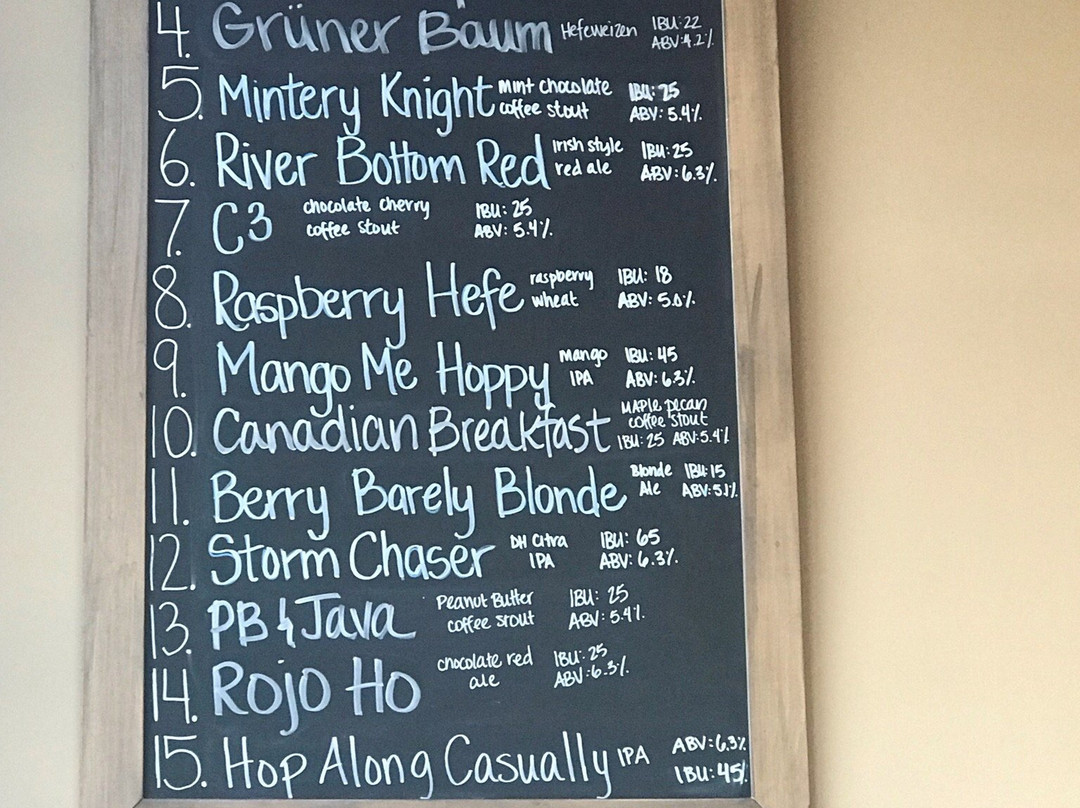 4. Grüner Baum Hefeweizen IBU: 22
ABV: 4.2%
5. Mintery Knight mint chocolate IBU: 25
coffee stout ABV: 5.4%
6. River Bottom Red Irish style IBU: 25
red ale ABV: 6.3%
7. C3 chocolate cherry IBU: 25
coffee stout ABV: 5.4%
8. Raspberry Hefe raspberry IBU: 18
wheat ABV: 5.0%
9. Mango Me Hoppy Mango IBU: 45
IPA ABV: 6.3%
10. Canadian Breakfast MAPle pecan
coffee stout
IBU: 25 ABV: 5.4%
11. Berry Barely Blonde Blonde IBU: 15
Ale ABV: 5.1%
12. Storm Chaser DH Citra IBU: 65
IPA ABV: 6.3%
13. PB & Java Peanut Butter IBU: 25
coffee stout ABV: 5.4%
14. Rojo Ho chocolate red IBU: 25
ale ABV: 6.3%
15. Hop Along Casually IPA ABV: 6.3%
IBU: 45%